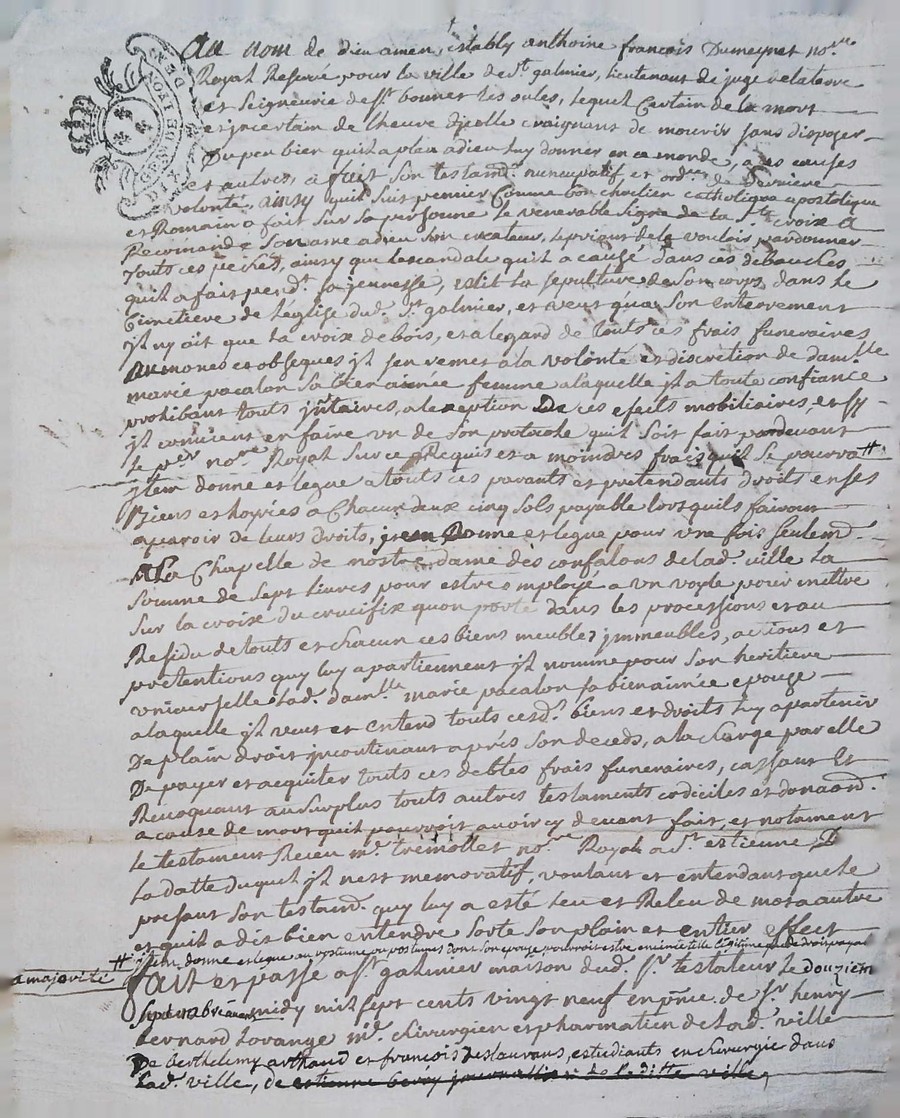 Au nom de dieu amen, estably anthoine francois Dumeynet no.re
Royal Reservé pour la ville de St. galmier, lieutenant de juge de la terre
et Seigneurie de St. bonnet les oules, lequel Certain de la mort
et incertain de lheure dicelle craignant de mourir sans disposer
Du peu bien quil a pleu a dieu luy donner en ce monde, a ces causes
et autres, a fait son testamd. nuncupatif et ordre de derniere
volonté, ainsy quil suit premier Comme bon chretien catholique apostolique
et Romain a fait sur sa personne le venerable signe de la Ste. croix a
Recomandé Son ame a dieu son createur, le priant de le vouloir pardonner
touts ces pechés, ainsy que lescandale quil a causé dans ces debauches
quil a fait pend.t sa jeunesse, eslit la sepulture de son corps dans le
Cimetiere de leglise dud. St. galmier, et veut qua son enterrement
jl ny ait que la croix de bois, et a legard de touts ces frais funeraires
aumones et obseques jl sen remet a la volonté et discretion de damlle
marie pacalon sa bien aimée femme a laquelle jl a toute confiance
prohibant touts jnvtaires, a lexeption De ces efects mobiliaires, et sy
jl convient en faire un de son protocole quil soit fait pardevant
le per. no.re Royal sur ce Requis et a moindres frais quil se pourra #
jtem donne et legue a touts ces parants et pretendants droits en ses
Biens et hoyries a Chacun deux cinq sols payable lors quils fairont
aparoir de leurs droits, jtem Donne et legue pour une fois seulemd.
A La Chapelle de nostre dame des confalons de lad. ville la
somme de sept livres pour estre employé a un voyle pour mettre
sur la croix du crucifix quon porte dans les processions et au
Residu de touts et chacun ces biens meubles jmmeubles, actions et
pretentions quy luy apartiennent jl nomme pour son heritiere
universelle lad. damlle marie pacalon sa bien aimée epouze
a laquelle jl veut et entend touts cesd. biens et droits luy apartenir
De plain droit jncontinant aprés son deceds, a la charge par elle
De payer et acquiter touts ces debtes frais funeraires, cassant et
Revoquant au surplus touts autres testaments codiciles et donaond.
a cause de mort quil pourroit avoir cy devant fait, et notament
le testament Receu mr. tremollet no.re Royal a St. estienne, D
la datte duquel jl nest memoratif, voulant et entendant que le
presant son testamd. quy luy a esté leu et Releu de mot a autre
et quil a dis bien entendre sorte son plain et entier effect
# jtem donne et legue au postume ou postumes dont son epouze pourroit estre enceinte lle legitime que de droit payable
a majorité
fait et passé a St. galmier maison dud. sr. testateur le douzien
septembre avant midy mil sept cents vingt neuf en pnce. de sr. henry
bernard Lovange md. chirurgien et pharmatien de lad. ville
De berthelemy arthaud et francois Deslaurans, estudiants en chirurgie dans
lad. ville, de estienne journallier de laditte ville,